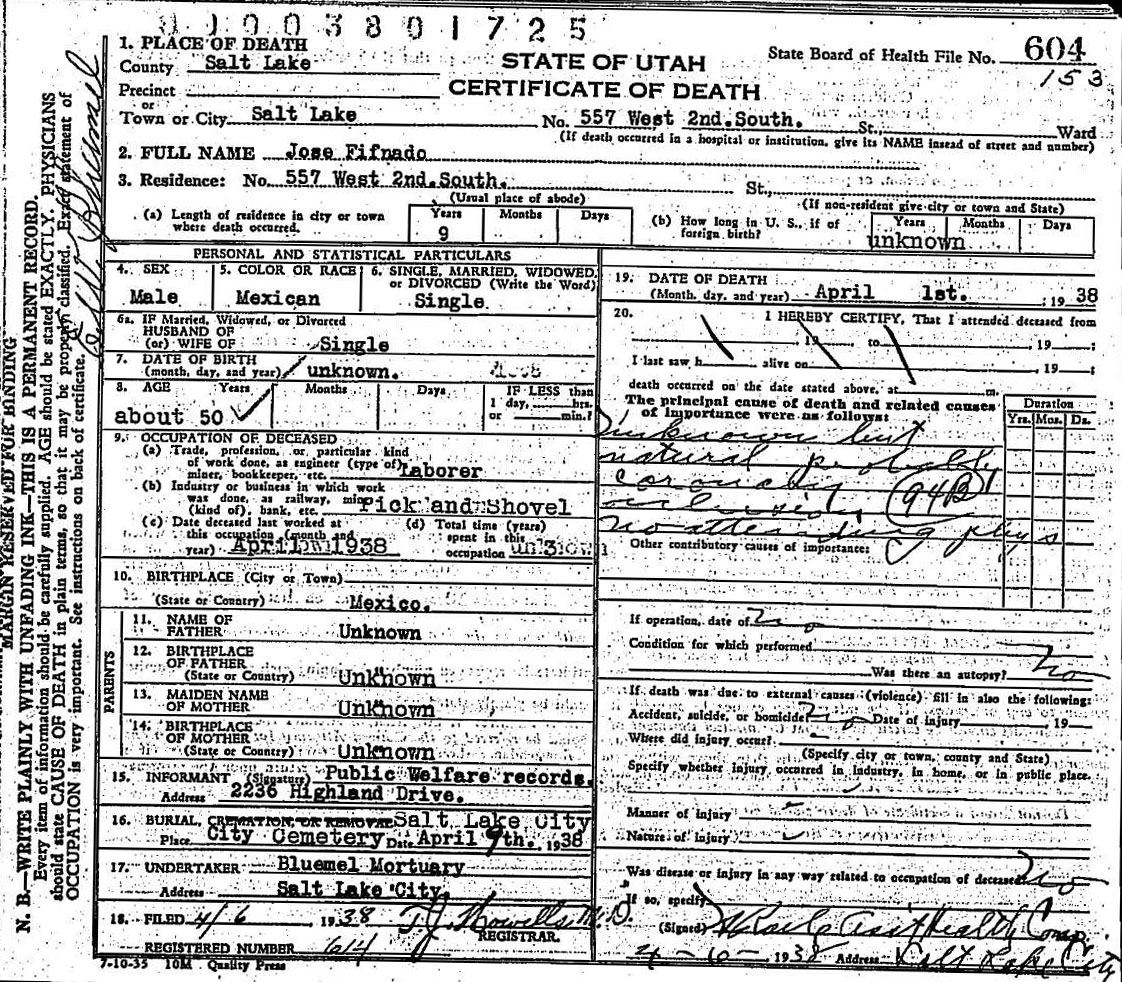 01003801725
1. PLACE OF DEATH
County Salt Lake
Precinct
or
Town or City Salt Lake
STATE OF UTAH
CERTIFICATE OF DEATH
State Board of Health File No. 604
153
No. 557 West 2nd.South. St., Ward
(If death occurred in a hospital or institution, give its NAME instead of street and number)
2. FULL NAME Jose Fifnado
3. Residence: No. 557 West 2nd.South. St.,
(Usual place of abode) (If non-resident give city or town and State)
(a) Length of residence in city or town where death occurred. Years 9 Months Days
(b) How long in U. S., if of foreign birth? Years Months Days
unknown
PERSONAL AND STATISTICAL PARTICULARS
4. SEX
Male
5. COLOR OR RACE
Mexican
6. SINGLE, MARRIED, WIDOWED, or DIVORCED (Write the Word)
Single
6a. IF Married, Widowed, or Divorced
HUSBAND OF
(or) WIFE OF Single
7. DATE OF BIRTH
(month, day, and year) unknown.
8. AGE Years Months Days IF LESS than
1 day, hrs.
or min.?
about 50
9. OCCUPATION OF DECEASED
(a) Trade, profession, or particular kind
of work done, as engineer (type of)
miner, bookkeeper, etc. Laborer
(b) Industry or business in which work
was done, as railway, mine
(kind of), bank, etc. Pick and Shovel
(c) Date deceased last worked at
this occupation (month and
year) April 1938
(d) Total time (years)
spent in this
occupation
10. BIRTHPLACE (City or Town)
(State or Country) Mexico.
PARENTS
11. NAME OF
FATHER Unknown
12. BIRTHPLACE
OF FATHER
(State or Country) Unknown
13. MAIDEN NAME
OF MOTHER Unknown
14. BIRTHPLACE
OF MOTHER
(State or Country) Unknown
15. INFORMANT (Signature) Public Welfare records.
Address 2236 Highland Drive.
16. BURIAL, CREMATION, OR REMOVAL Salt Lake City
Place City Cemetery Date April 9th. 1938
17. UNDERTAKER Bluemel Mortuary
Address Salt Lake City.
18. FILED 4/6 1938 T.J. Howells M.D.
REGISTRAR.
REGISTERED NUMBER 614
7-10-35 10M Quality Press
19. DATE OF DEATH
(Month, day, and year) April 1st. , 19 38
20. I HEREBY CERTIFY, That I attended deceased from
, 19 to , 19 ;
I last saw h alive on , 19 ;
death occurred on the date stated above, at m.
The principal cause of death and related causes
of importance were as follows:
Duration
Yrs. Mos. Ds.
Unknown but
natural probably
coronary (94B)
occlusion
no attending phys
Other contributory causes of importance:
If operation, date of no
Condition for which performed
Was there an autopsy? no
If death was due to external causes (violence) fill in also the following:
Accident, suicide, or homicide? no Date of injury , 19
Where did injury occur?
(Specify city or town, county and State)
Specify whether injury occurred in industry, in home, or in public place.
Manner of injury -
Nature of injury -
Was disease or injury in any way related to occupation of deceased? no
If so, specify
(Signed) Asst Health Com
4-6-1938 Address Salt Lake City
MARGIN RESERVED FOR BINDING
N. B.—WRITE PLAINLY WITH UNFADING INK—THIS IS A PERMANENT RECORD.
Every item of information should be carefully supplied. AGE should be stated EXACTLY. PHYSICIANS
should state CAUSE OF DEATH in plain terms, so that it may be properly classified. Exact statement of
OCCUPATION is very important. See instructions on back of certificate.